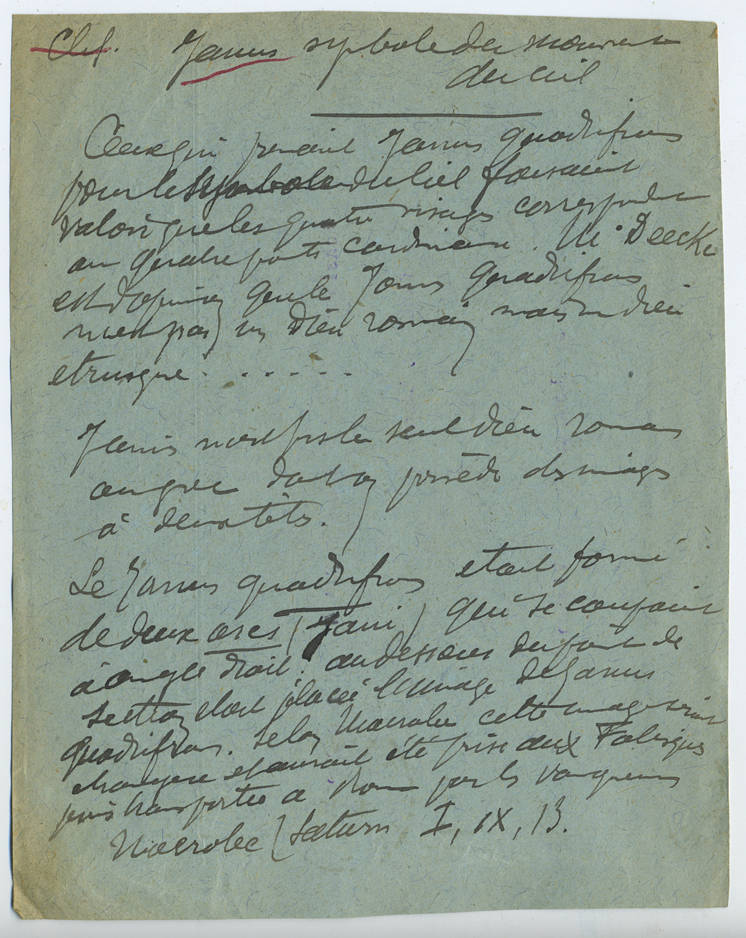 Clef. Janus symbole du mouvement
du ciel
Ceux qui prenaient Janus quadrifrons
pour le symbole du ciel faisaient
valoir que les quatre visages correspondent
aux quatre points cardinaux. M. Deecke
est d'opinion que le Janus Quadrifrons
n'est pas un Dieu romain mais un dieu
etrusque . . . . . .
Janus n'est pas le seul dieu romain
ou grec dont on possède des images
à deux têtes.
Le Janus quadrifrons etait formé
de deux arcs (Jani) qui se coupaient
à angle droit. au dessous du point de
section etait placée l'image de Janus
quadrifrons. Selon Macrobe cette image serait
étrangère et aurait été prise aux Falisques
puis transportée à Rome par les vainqueurs
Macrobe (Saturn I, IX, 13.